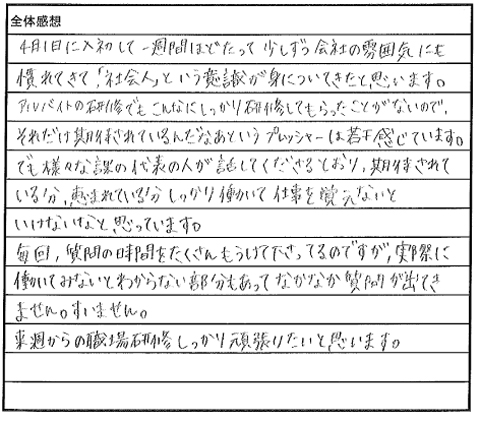 全体感想
4月1日に入初して一週間ほどたって少しずつ会社の雰囲気にも
慣れてきて「社会人」という意識が身についてきたと思います。
アルバイトの研修でもこんなにしっかり研修してもらったことがないので、
それだけ期待されているんだなあというプレッシャーは若干感じています。
でも様々な課の代表の人が話してくださるとおり、期待されて
いる分、恵まれている分しっかり働いて仕事を覚えないと
いけないなと思っています。
毎回、質問の時間をたくさんもうけて下さってるのですが、実際に
働いてみないとわからない部分もあってなかなか質問が出てき
ません。すいません。
来週からの職場研修しっかり頑張りたいと思います。